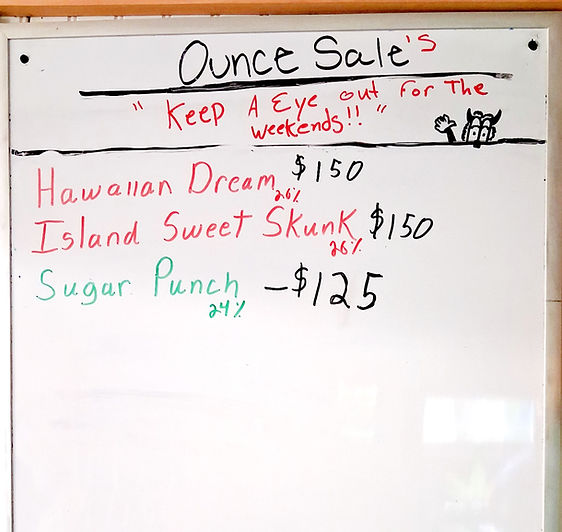 Ounce Sale's
" Keep A Eye out For The
weekends!! "
Hawaiian Dream $150
26%
Island Sweet Skunk $150
26%
Sugar Punch -$125
24%